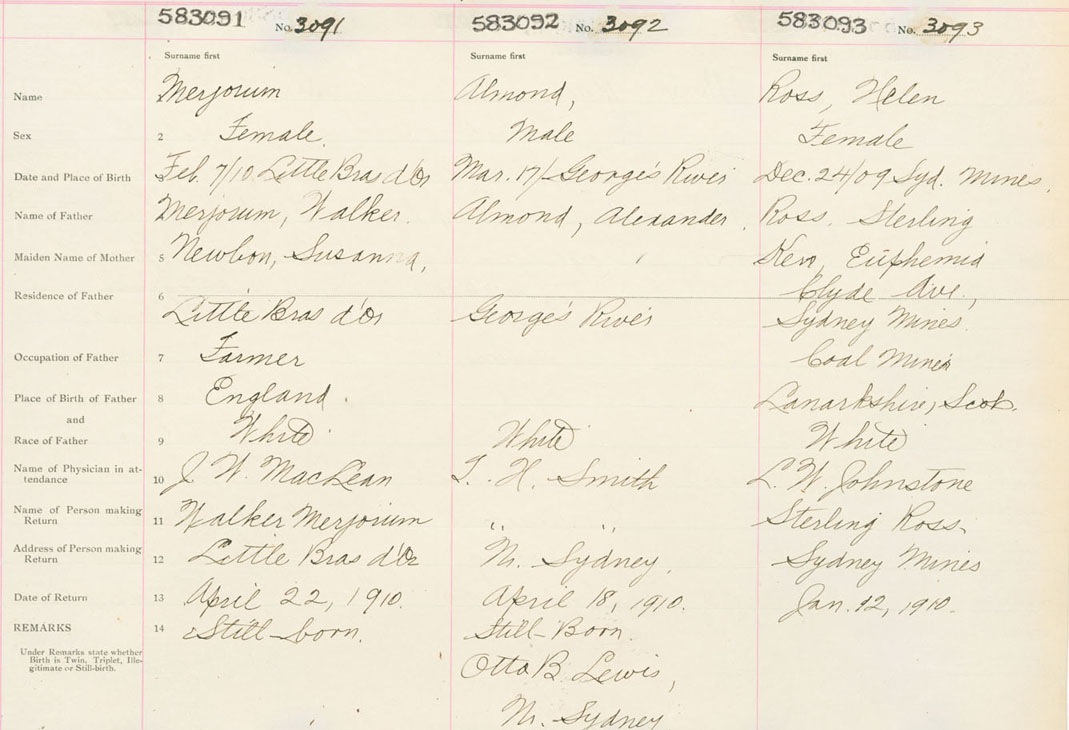 583091 No. 3091 583092 No. 3092 583093 No. 3093
Surname first Surname first Surname first
Name Merjorum Almond, Ross, Helen
Sex 2 Female. Male Female
Date and Place of Birth 3 Feb. 7/10 Little Bras d'Or Mar. 17/ George's River Dec. 24/09 Syd. Mines.
Name of Father Merjorum, Walker. Almond, Alexander. Ross, Sterling
Maiden Name of Mother 5 Susanna, Euphemia
Residence of Father 6 Clyde Ave.,
Little Bras d'Or George's River Sydney Mines.
Occupation of Father 7 Farmer Coal Miner
Place of Birth of Father 8 England. Lanarkshire, Scot.
and
Race of Father 9 White White White
Name of Physician in at-
tendance 10 J. W. MacLean T. H. Smith L. W. Johnstone
Name of Person making
Return 11 Walker Merjorum " " Sterling Ross.
Address of Person making
Return 12 Little Bras d'Or N. Sydney. Sydney Mines
Date of Return 13 April 22, 1910. April 18, 1910. Jan. 12, 1910.
REMARKS 14 Still-born. Still-Born.
Under Remarks state whether
Birth is Twin, Triplet, Ille-
gitimate or Still-birth.
Otto B. Lewis,
N. Sydney